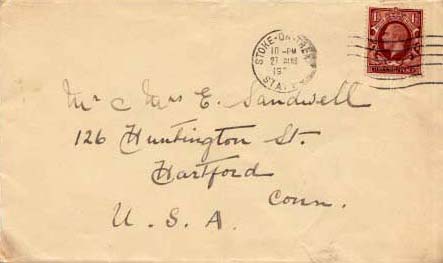 STOKE-ON-TREN
10 - PM
27 AUG
19
STAF
Mr & Mrs E. Sandwell
126 Huntington St.
Hartford
Conn.
U. S. A.